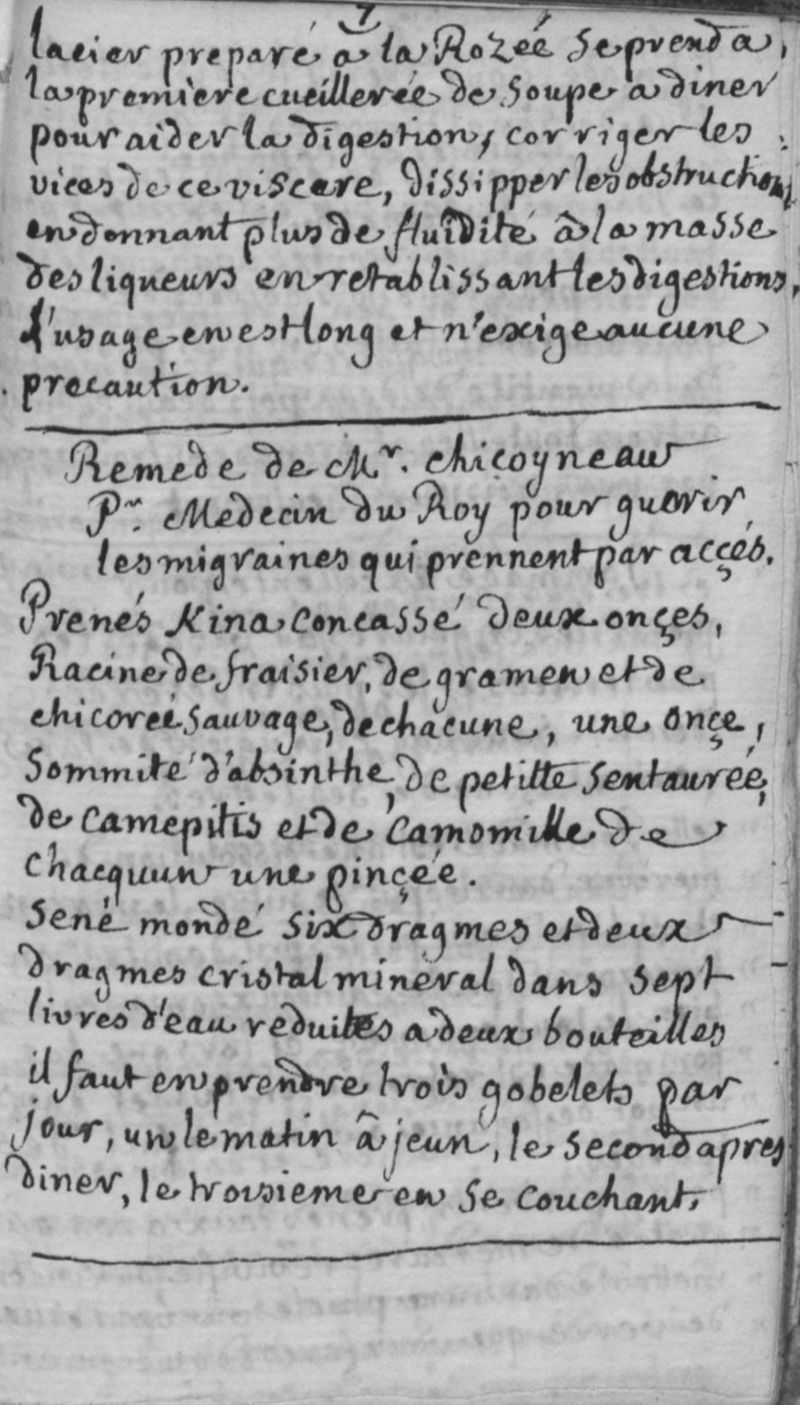 7
lacier preparé â la Rozéé se prend a,
la premiere cueilleréе de soupe a diner
pour aider la digestion, corriger les
vices de ce viscere, dissipper les obstructions
en donnant plus de fluidité â la masse
des liqueurs en retablissant les digestions,
l'usage en est long et n'exige aucune
precaution.
Remede de Mr. chicoyneau
Pr. Medecin du Roy pour guerir
les migraines qui prennent par accçés.
Prenés Kina concassé deux onçes,
Racine de fraisier, de gramen et de
chicoreé sauvage, de chacune, une onçe,
Sommité d'absinthe, de petitte sentauréé,
de camepitis et de camomille de
chacquun une pinçée.
Sené mondé six dragmes et deux
dragmes cristal mineral dans sept
livres d'eau reduites a deux bouteilles
il faut en prendre trois gobelets par
jour, un le matin â jeun, le second apres
diner, le troisieme en se couchant.